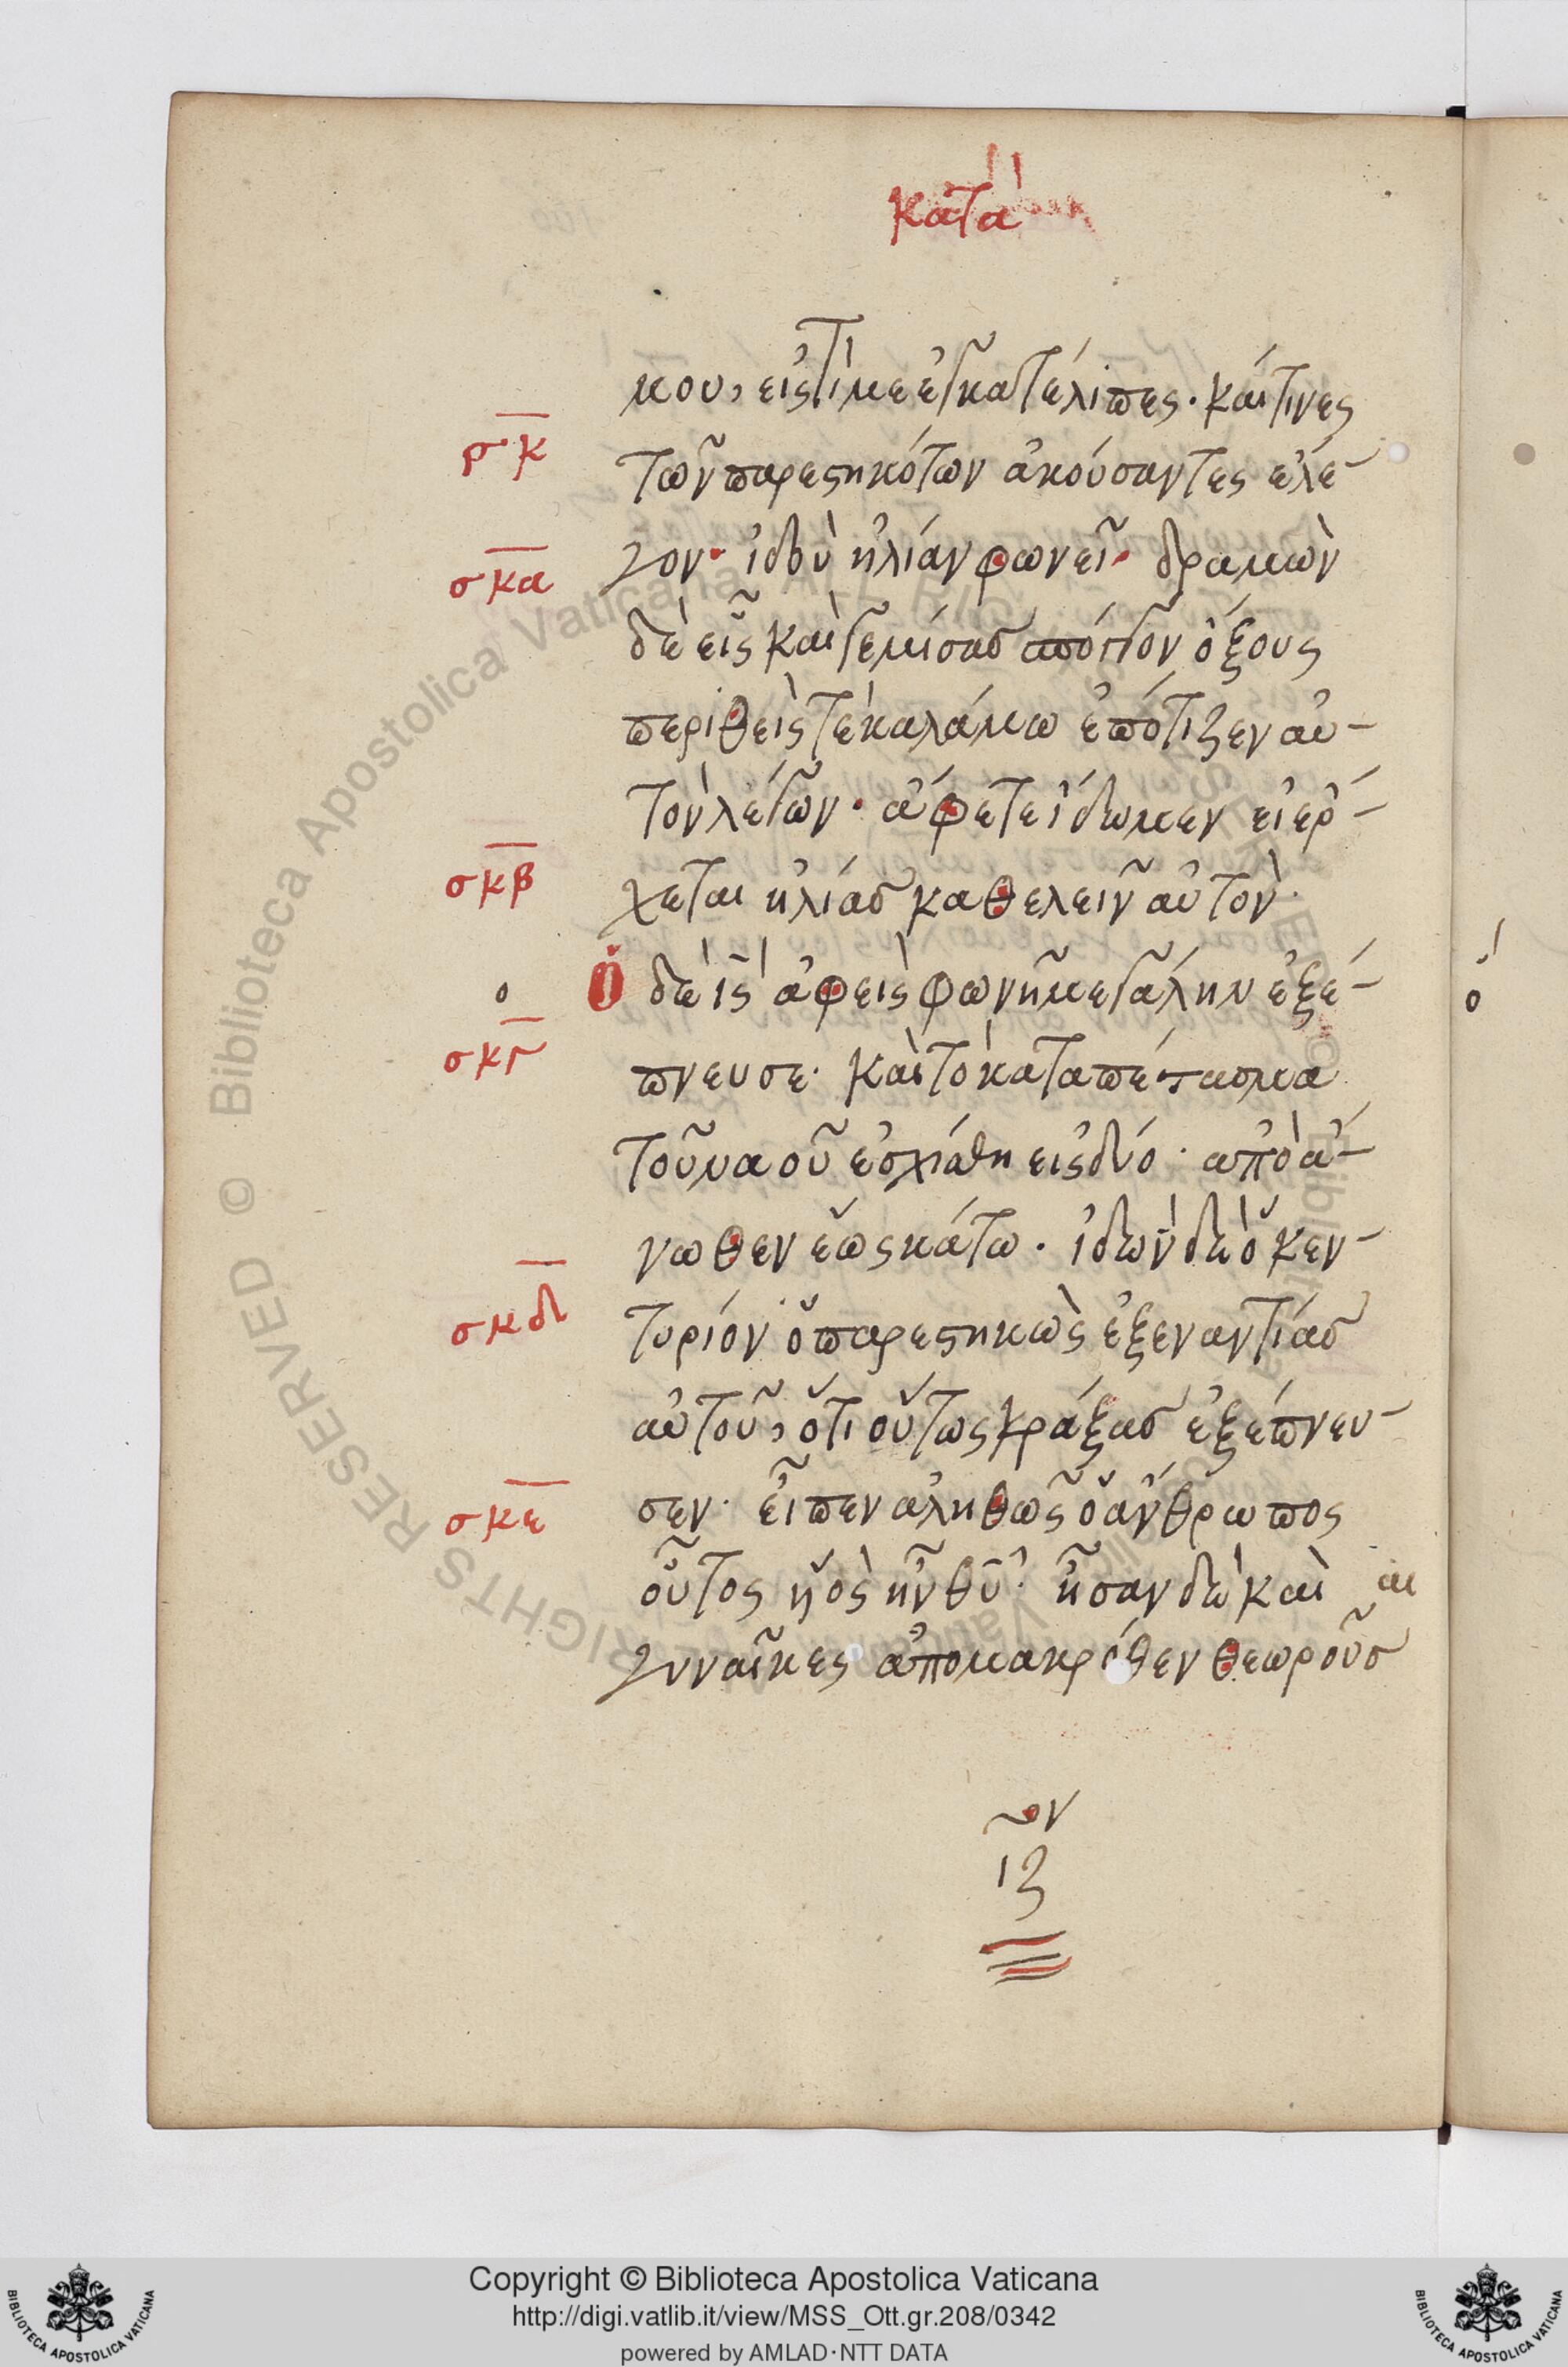 κατὰ
μου, εἰς τί με ἐγκατέλιπες. καί τινες
ρ·κ
τῶν παρεστηκότων ἀκούσαντες ἐλε-
σκα
γον· ἰδοὺ ἠλίαν φωνεῖ· δραμὼν
δὲ εἷς καὶ γεμίσας σπόγγον ὄξους
περιθείς τὲ καλάμω ἐπότιζεν αὐ-
τὸν λέγων· ἄφετε ἴδωμεν εἰ ἔρ-
σκβ
χεται ἠλίας καθελεῖν αὐτὸν·
Ὁ δὲ ις ἀφεὶς φωνὴν μεγάλην ἐξέ-
ο
σκγ
πνευσε· καὶ τὸ καταπέτασμα
τοῦ ναοῦ ἐσχίσθη εἰς δύο· ἀπὸ ἄ-
νωθεν ἕως κάτω. ἰδὼν δὲ ὁ κεν-
σκδ
τυρίον ὁ παρεστηκὼς ἐξεναντίας
αὐτοῦ, ὅτι οὕτως κράξας ἐξέπνευ-
σκε
σεν· εἶπεν ἀληθῶς ὁ ἄνθρωπος
οὗτος ϋἱὸς ἦν θῦ· ἦσαν δὲ καὶ αι
γυναῖκες ἀπομακρόθεν θεωροῦσ
ον
ιζ
Copyright © Biblioteca Apostolica Vaticana
http://digi.vatlib.it/view/MSS_Ott.gr.208/0342
powered by AMLAD·NTT DATA
BIBLIOTECA APOSTOLICA VATICANA
BIBLIOTECA APOSTOLICA VATICANA